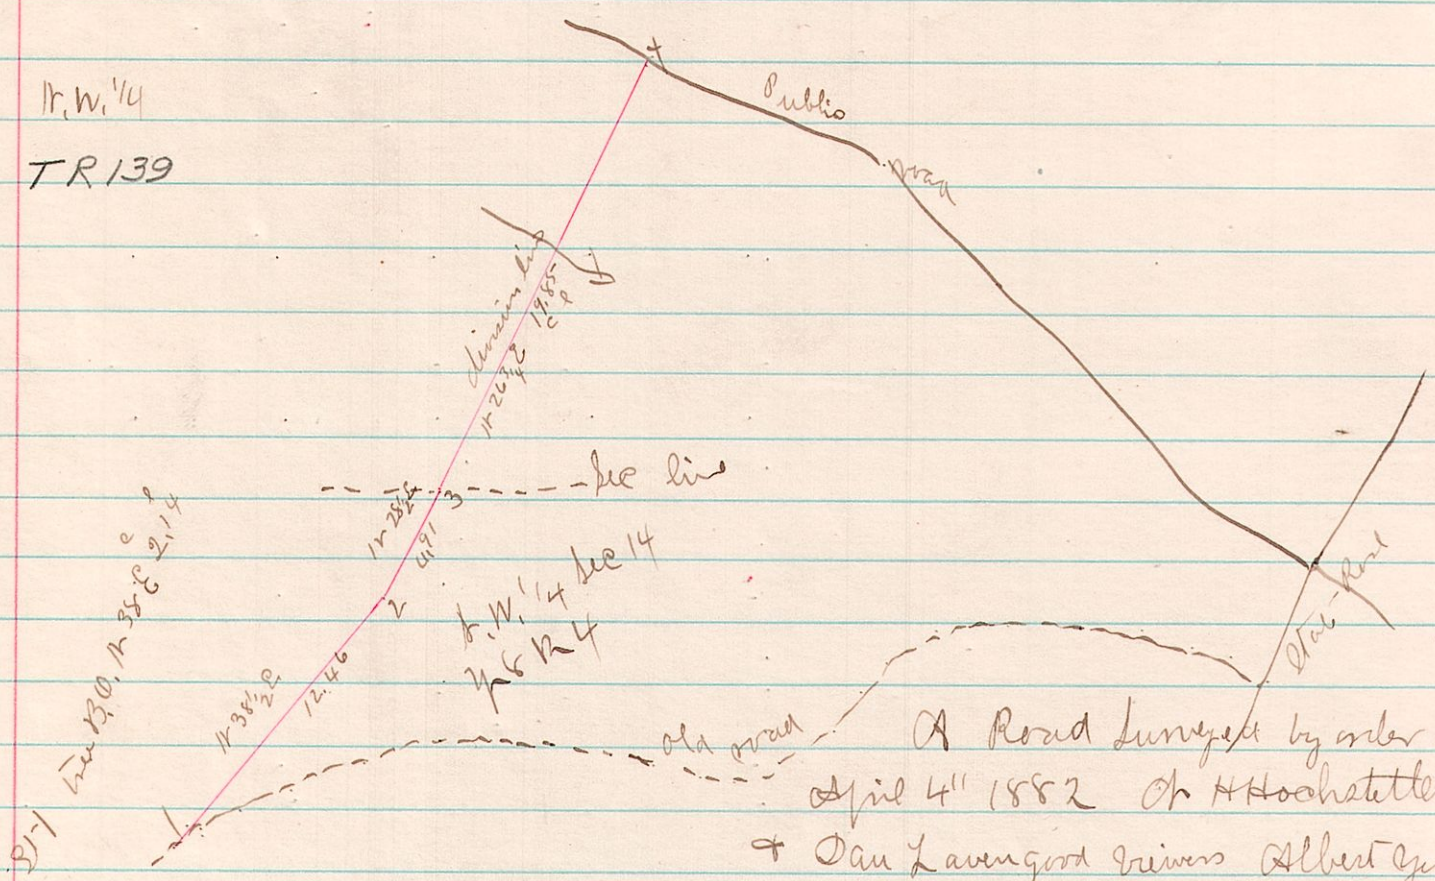 N.W. 1/4
TR 139
Public road
division line
N 26 3/4 E 19.85
Sec line
3
N 28 1/2 E
6.91
2
N.W. 1/4 Sec 14
8 R 4
N 38 1/2 E
12.46
N 38 E 2.14
old road
1
State Road
A Road Surveyed by order
April 4" 1882 of H Hochstetle
+ Dan Lavengood viewers Albert